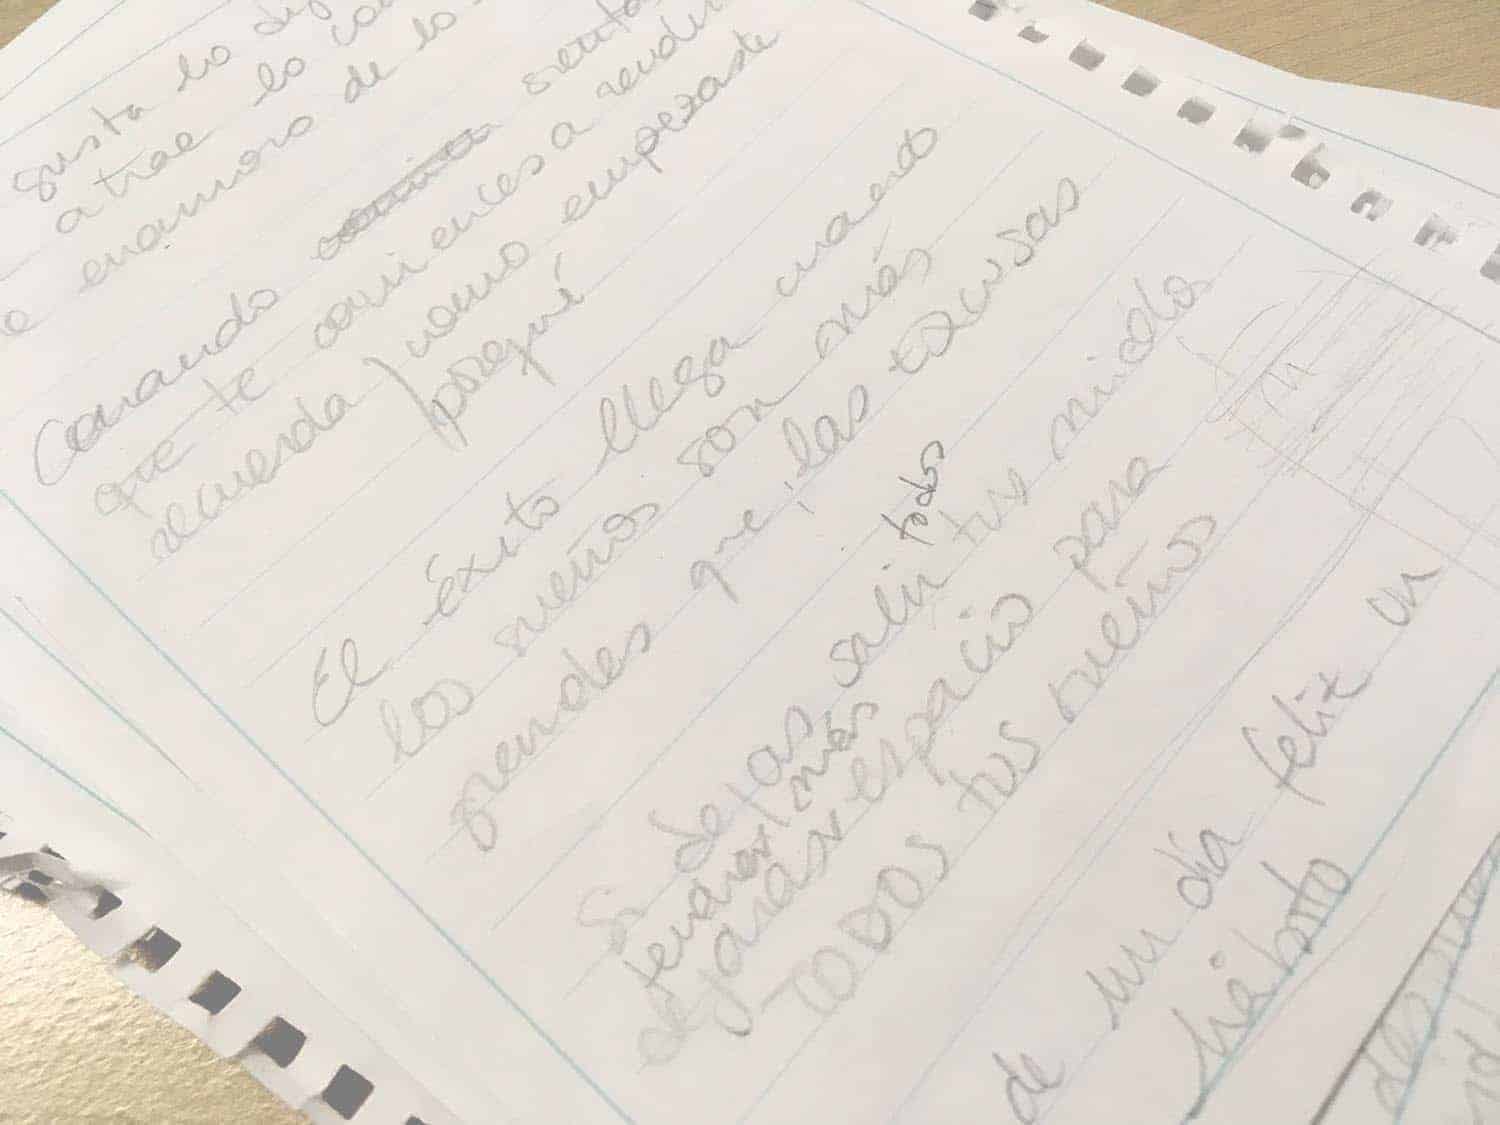 gusta lo di
atrae lo co
e enamoro de lo
Cuando sienta
que te comiences a rendir
recuerda como empezaste
porqué
El éxito llega cuando
los sueños son más
grandes que las excusas
Si dejas salir todos tus miedo
tenárar más
dejarás espacio para
TODOS tus sueños
de un día feliz un
hábito